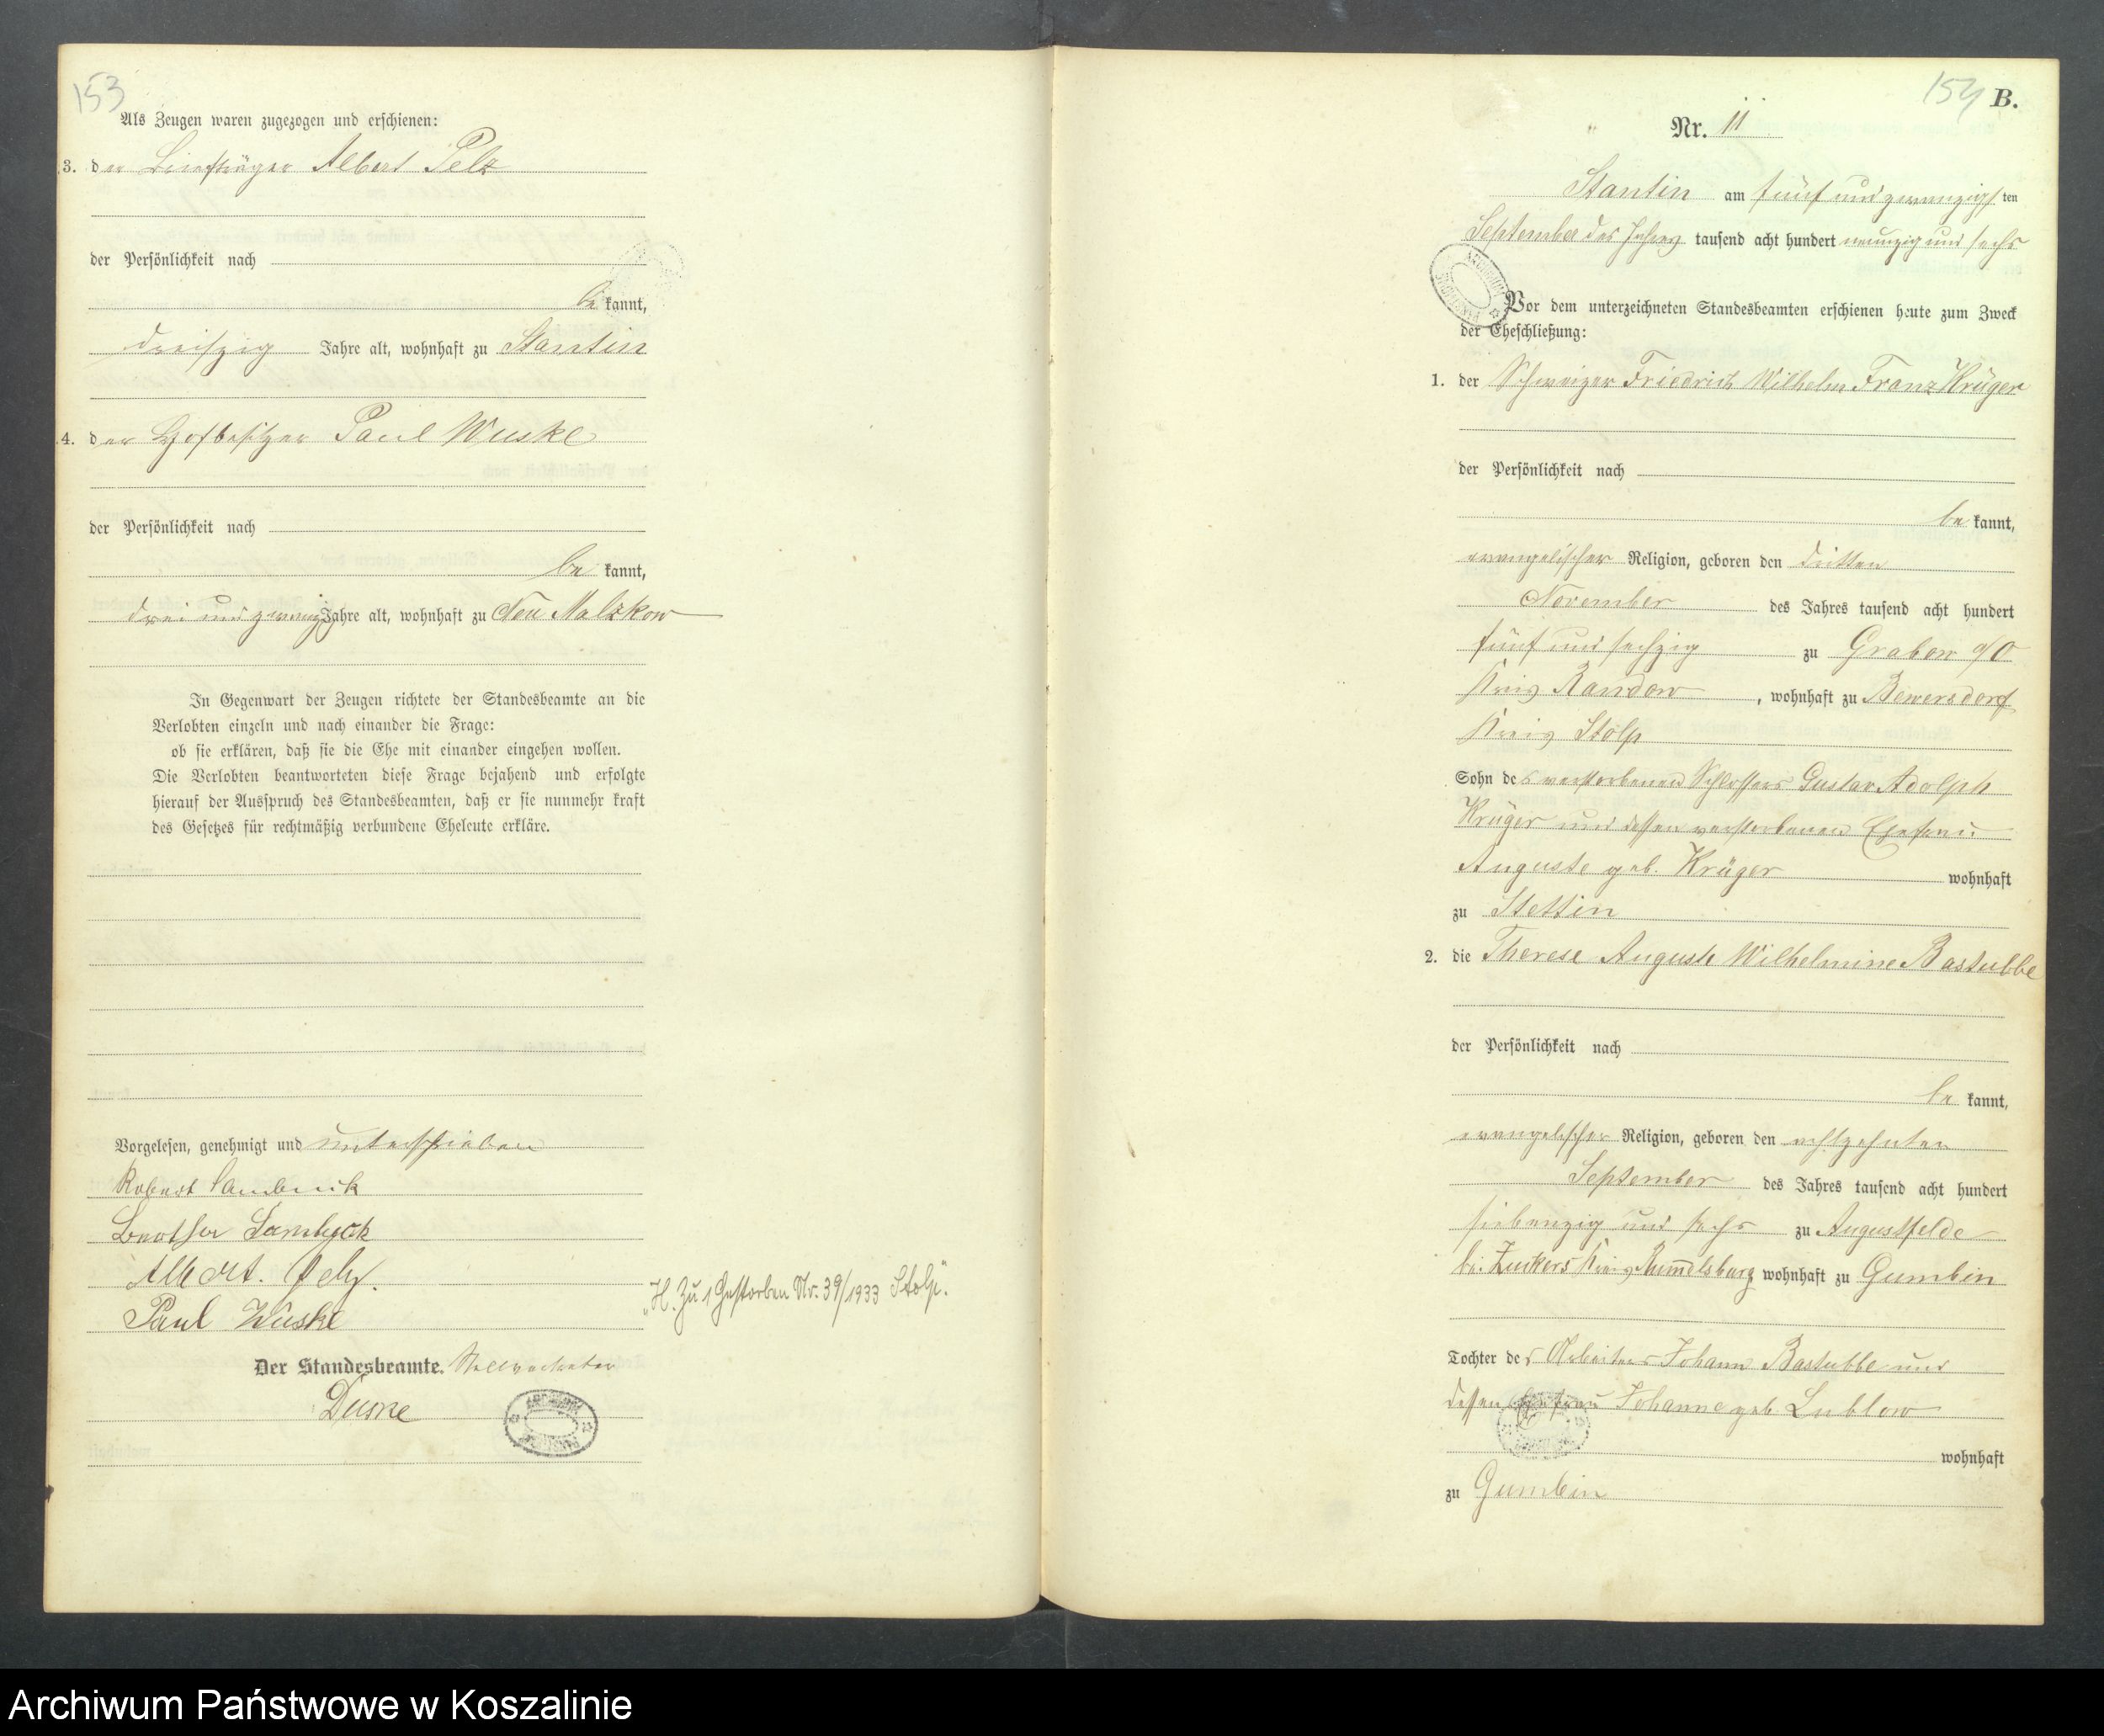 153
Als Zeugen waren zugezogen und erschienen:
3. der Briefträger Albert Pelz
der Persönlichkeit nach
be kannt,
dreißig Jahre alt, wohnhaft zu Stantin
4. der Hofbesitzer Paul Wuske
der Persönlichkeit nach
be kannt,
drei und zwanzig Jahre alt, wohnhaft zu Neu Malzkow
In Gegenwart der Zeugen richtete der Standesbeamte an die
Verlobten einzeln und nach einander die Frage:
ob sie erklären, daß sie die Ehe mit einander eingehen wollen.
Die Verlobten beantworteten diese Frage bejahend und erfolgte
hierauf der Ausspruch des Standesbeamten, daß er sie nunmehr kraft
des Gesetzes für rechtmäßig verbundene Eheleute erkläre.
Vorgelesen, genehmigt und unterschrieben
Robert
Albert Pelz.
Paul Wuske
"H. Zu 1 Gestorben Nr. 39/1933 Stolp".
Der Standesbeamte. Stellvertreter
154 B.
Nr. 11
Stantin am fünf und zwanzigsten
September des Jahres tausend acht hundert neunzig und sechs
Vor dem unterzeichneten Standesbeamten erschienen heute zum Zweck
der Eheschließung:
1. der Schweizer Friedrich Wilhelm Franz Krüger
der Persönlichkeit nach
be kannt,
evangelischer Religion, geboren den dritten
November des Jahres tausend acht hundert
fünf und sechzig zu Grabow a/O
Kreis Randow, wohnhaft zu Bewersdorf
Kreis Stolp
Sohn des verstorbenen Schlossers Gustav Adolph
Krüger und dessen verstorbenen Ehefrau
Auguste geb. Krüger wohnhaft
zu Stettin
2. die Therese Auguste Wilhelmine Bastubbe
der Persönlichkeit nach
be kannt,
evangelischer Religion, geboren den achtzehnten
September des Jahres tausend acht hundert
siebenzig und sechs zu Augustfelde
bei Zuckers Kreis Rummelsburg wohnhaft zu Gumbin
Tochter des Arbeiters Johann Bastubbe und
dessen Ehefrau Johanne geb Lublow
wohnhaft
zu Gumbin
Archiwum Państwowe w Koszalinie